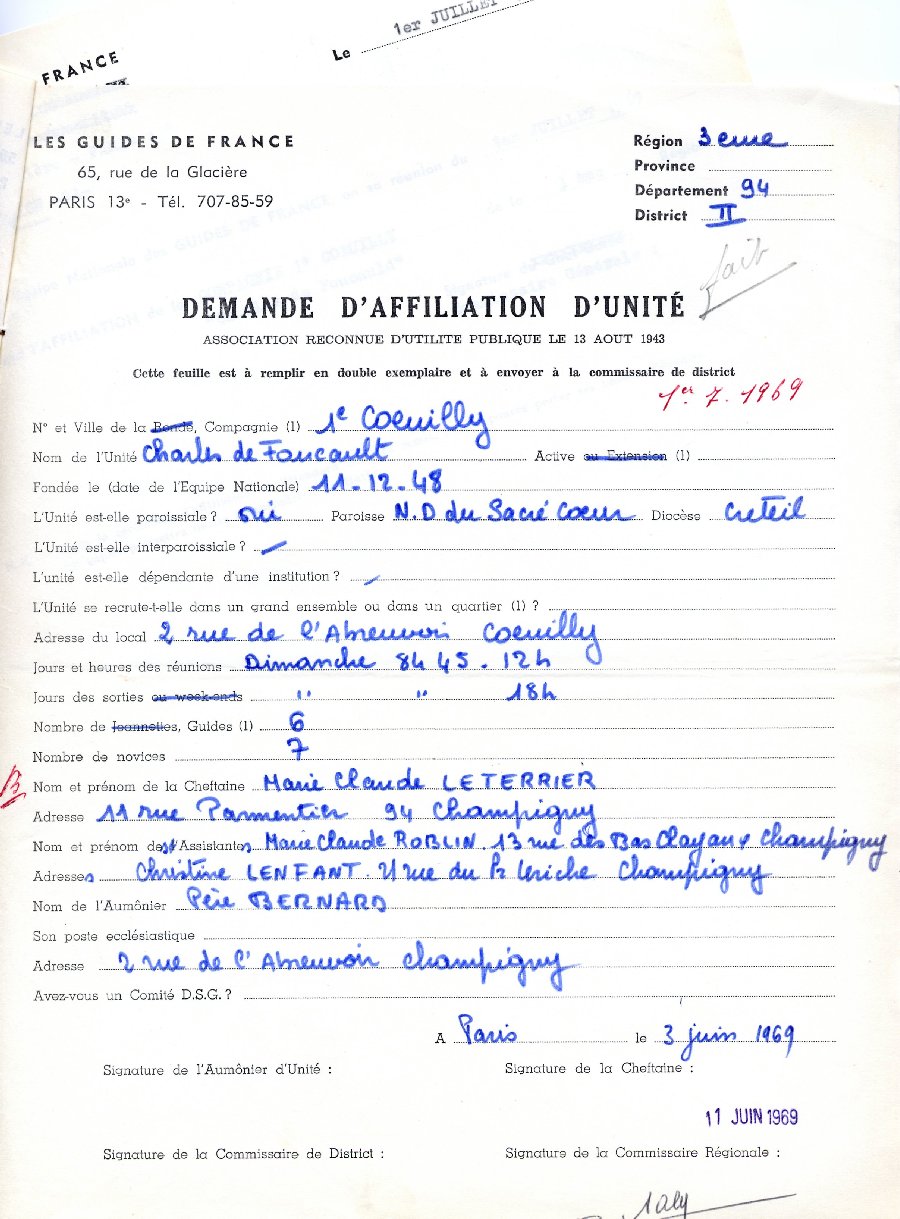 FRANCE
Le 1er JUILLET
LES GUIDES DE FRANCE
65, rue de la Glacière
PARIS 13e - Tél. 707-85-59
Région 3eme
Province
Département 94
District II
fait
DEMANDE D'AFFILIATION D'UNITÉ
ASSOCIATION RECONNUE D'UTILITE PUBLIQUE LE 13 AOUT 1943
Cette feuille est à remplir en double exemplaire et à envoyer à la commissaire de district
1er 7. 1969
N° et Ville de la Ronde, Compagnie (1) 1e Coeuilly
Nom de l'Unité Charles de Foucault Active ou Extension (1)
Fondée le (date de l'Equipe Nationale) 11-12-48
L'Unité est-elle paroissiale ? oui Paroisse N.D du Sacré Coeur Diocèse Creteil
L'Unité est-elle interparoissiale ? /
L'unité est-elle dépendante d'une institution ? /
L'Unité se recrute-t-elle dans un grand ensemble ou dans un quartier (1) ?
Adresse du local 2 rue de l'Abreuvoir Coeuilly
Jours et heures des réunions Dimanche 8h45-12h
Jours des sorties ou week-ends " " 18h
Nombre de Jeannettes, Guides (1) 6
Nombre de novices 7
Nom et prénom de la Cheftaine Marie Claude LETERRIER
Adresse 11 rue Parmentier 94 Champigny
Nom et prénom des Assistantes Marie Claude ROBLIN. 13 rue des Bas Clayaux Champigny
Adresses Christine LENFANT. 21 rue du Pr Leriche Champigny
Nom de l'Aumônier Père BERNARD
Son poste ecclésiastique
Adresse 2 rue de l'Abreuvoir Champigny
Avez-vous un Comité D.S.G. ?
A Paris le 3 juin 1969
Signature de l'Aumônier d'Unité : Signature de la Cheftaine :
11 JUIN 1969
Signature de la Commissaire de District : Signature de la Commissaire Régionale :